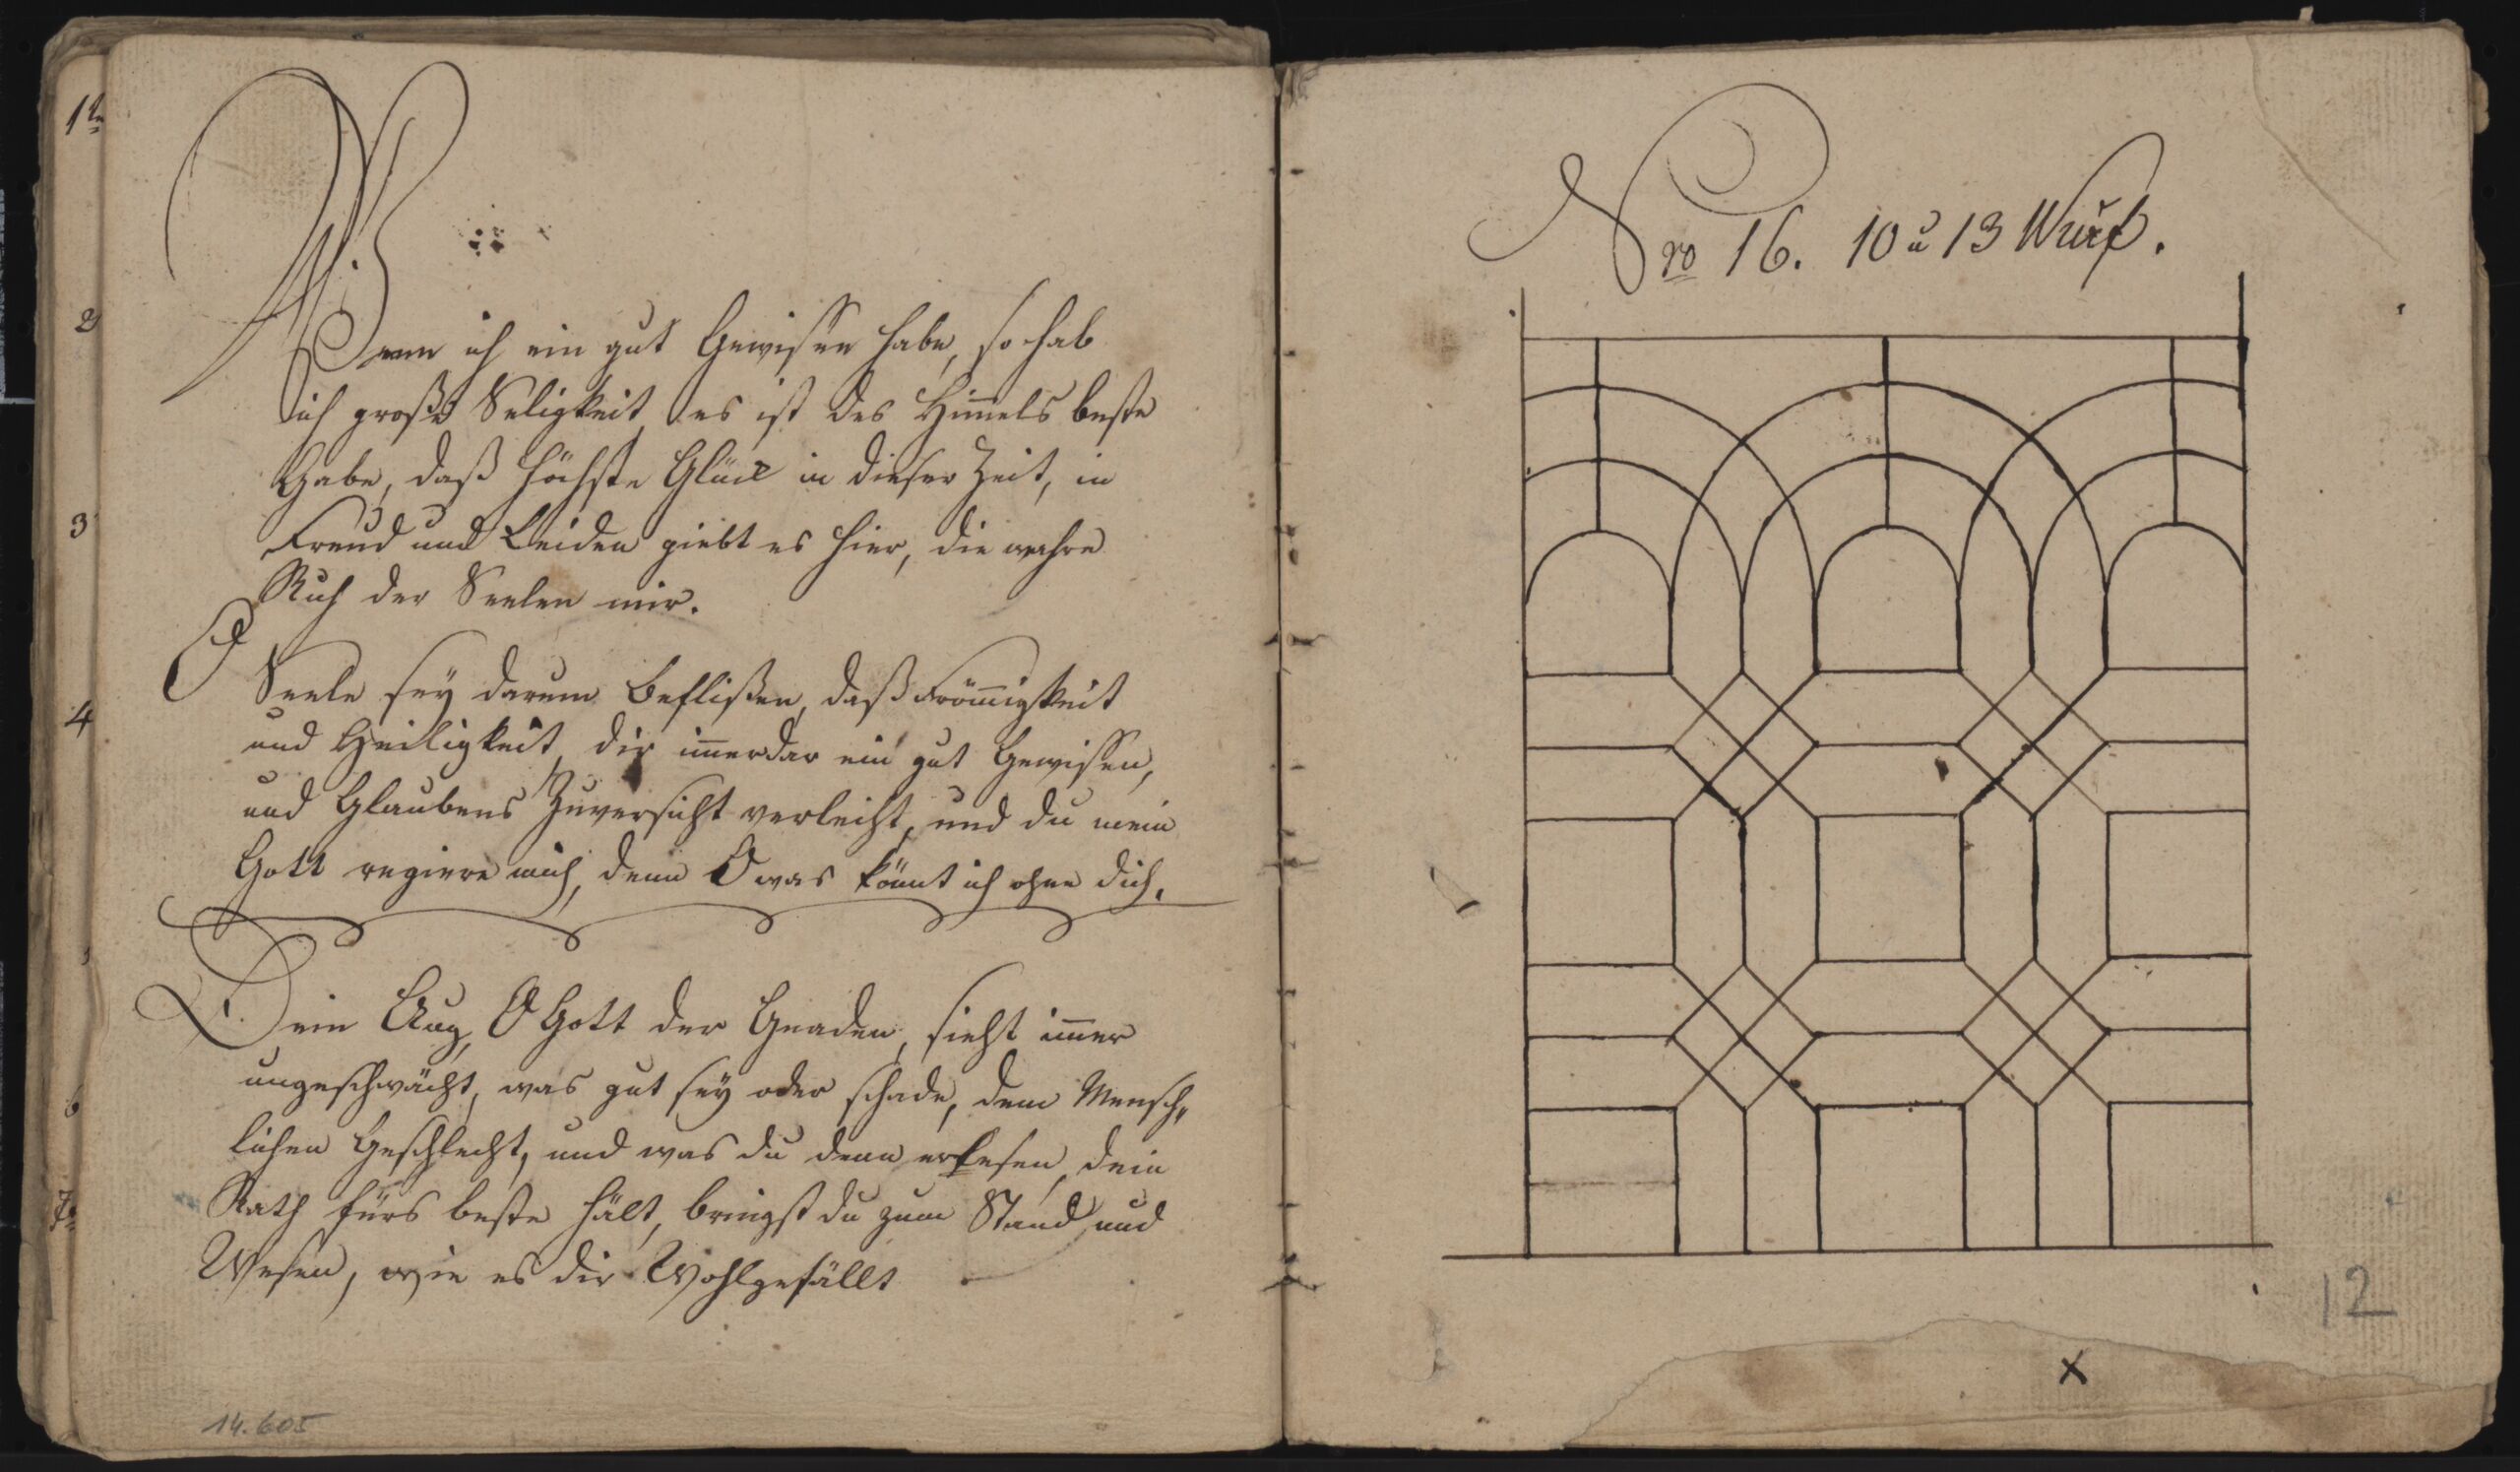 1tn
2
3
4
6
7tn
Wenn ich ein gut Gewissen habe, so hab
ich große Seligkeit es ist des Him̄els beste
Gabe, daß höchste Glück in dieser Zeit, in
Freud und Leiden giebt es hier, die wahre
Ruh der Seelen mir.
O
Seele sey darum beflißen, daß Fröm̄igkeit
und Heiligkeit, dir im̄erdar ein gut Gewissen,
und Glaubens Zuversicht verleiht, und du mein
Gott regiere mich, denn O was kön̄t ich ohne dich.
Dein Aug, O Gott der Gnaden, sieht im̄er
ungeschwächt, was gut sey oder schade, dem Mensch„
lichen Geschlecht, und was du denn erlesen, dein
Rath fürs beste hält, bringst du zum Stand und
Wesen, wie es dir Wohlgefällt
14.605
Nro 16. 10 u 13 Würf.
12
x